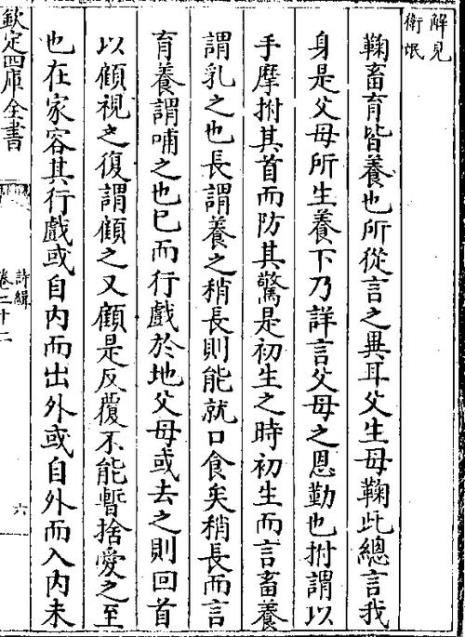 解見
衛氓
鞠畜育皆養也所從言之異耳父生母鞠此總言我
身是父母所生養下乃詳言父母之恩勤也拊謂以
手摩拊其首而防其驚是初生之時初生而言畜養
謂乳之也長謂養之稍長則能就口食矣稍長而言
育養謂哺之也已而行戲於地父母或去之則回首
以顧視之復謂顧之又顧是反覆不能暫捨愛之至
也在家容其行戲或自內而出外或自外而入內未
欽定四庫全書
詩緝
卷二十二
六